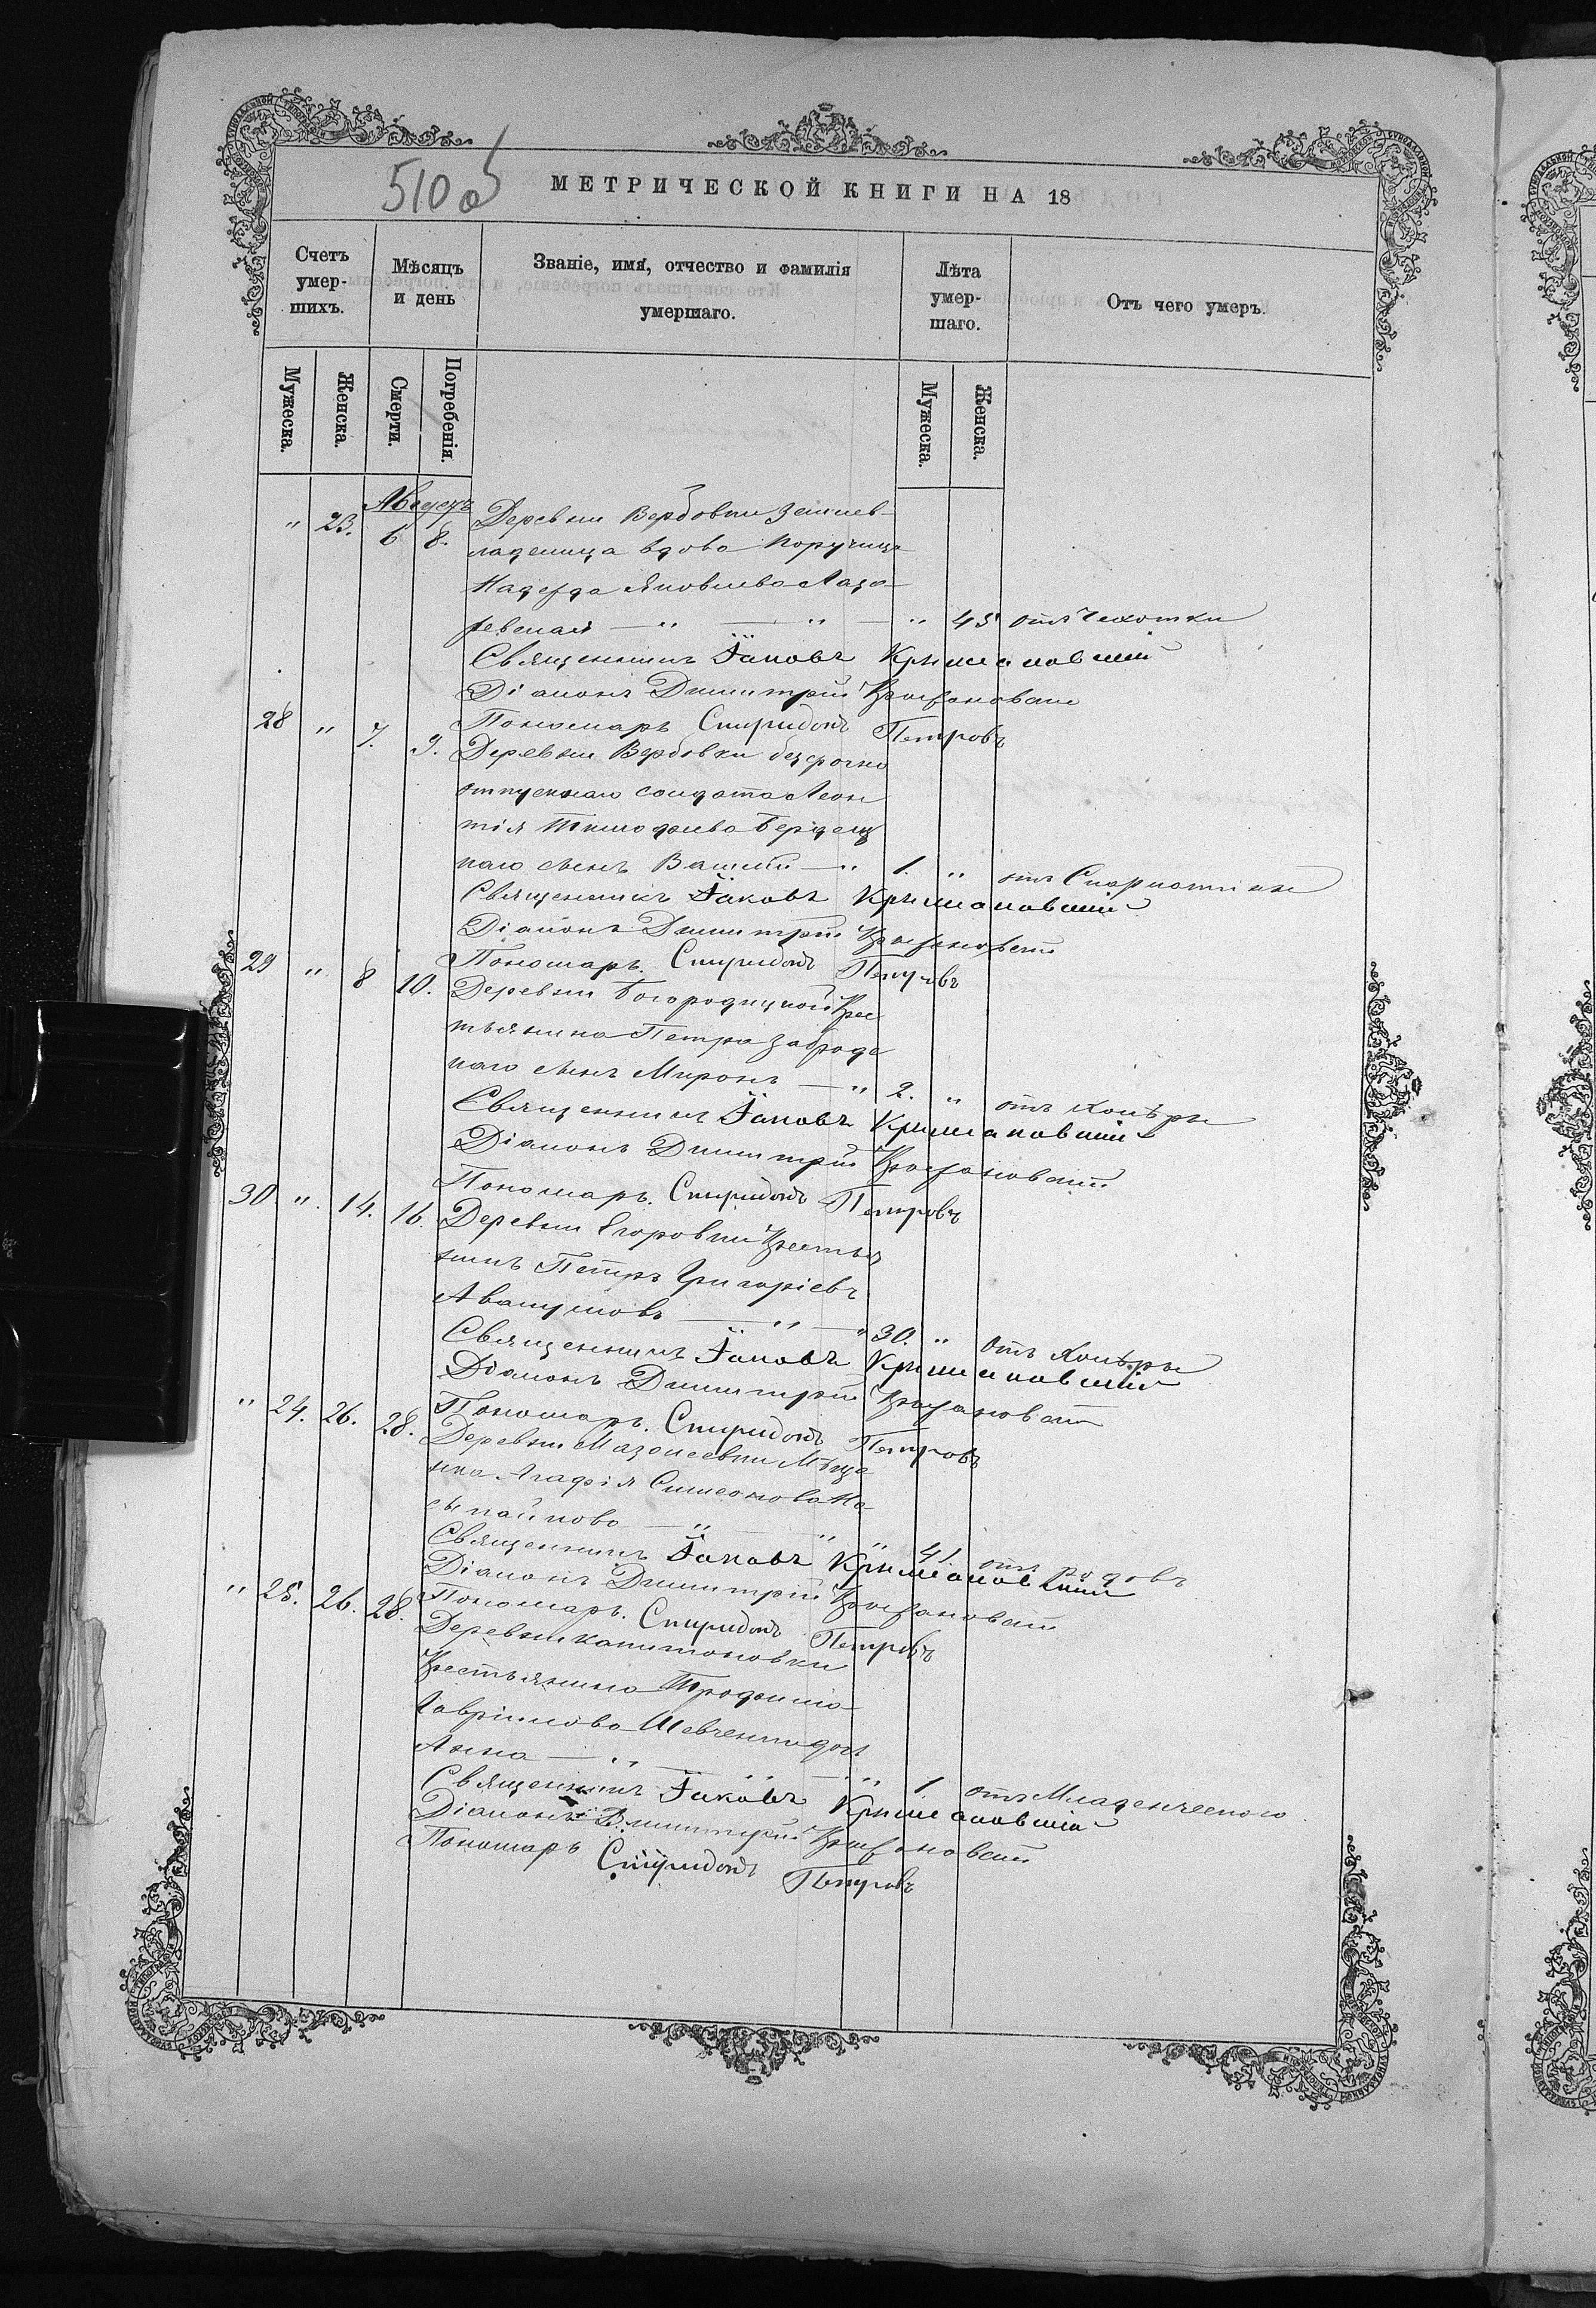 510 об
МЕТРИЧЕСКОЙ КНИГИ НА 18
Счетъ умершихъ.
Мѣсяцъ и день
Званіе, имя, отчество и фамилія умершаго.
Лѣта умершаго.
Отъ чего умеръ.
Мужеска. Женска. Смерти. Погребенія. Мужеска. Женска.
Августъ
" 23. 6 8. Деревни Вербовки землев-
ладелица вдова Поручица
Надежда Яковлева Лаза-
ревская — " — " — " 45 отъ Чахотки
Священникъ Іаковъ Крыжановскій
Діаконъ Димитрій
Пономарь Спиридонъ Петровъ
28 " 7. 9. Деревни Вербовки безсрочно
отпускнаго солдата Леон
тія Тимофеева
наго сынъ — " 1. " отъ Скарлатины
Священникъ Іаковъ Крыжановскій
Діаконъ Димитрій
Пономарь Спиридонъ Петровъ
29 " 8 10. Деревни Богородицкой Крес
тьянина Петра Заброд
наго сынъ Миронъ — " 2. " отъ Холѣры
Священникъ Іаковъ Крыжановскій
Діаконъ Димитрій
Пономарь Спиридонъ Петровъ
30 " 14. 16. Деревни Егоровки Крестья
нинъ Петръ Григоріевъ
Авакумовъ — " — " 30. " отъ Холѣры
Священникъ Іаковъ Крыжановскій
Діаконъ Димитрій
Пономарь Спиридонъ Петровъ
" 24. 26. 28. Деревни Мѣща
нка Агафія Симеонова На
сыпайкова — " " " 41 отъ родовъ
Священникъ Іаковъ Крыжановскій
Діаконъ Димитрій
Пономарь Спиридонъ Петровъ
" 25. 26. 28. Деревни Капитоновки
Крестьянина Трофима
Гавріилова Шевченки дочь
Анна — " — " — " 1 отъ Младенческаго
Священникъ Іаковъ Крыжановскій
Діаконъ Димитрій
Пономарь Спиридонъ Петровъ